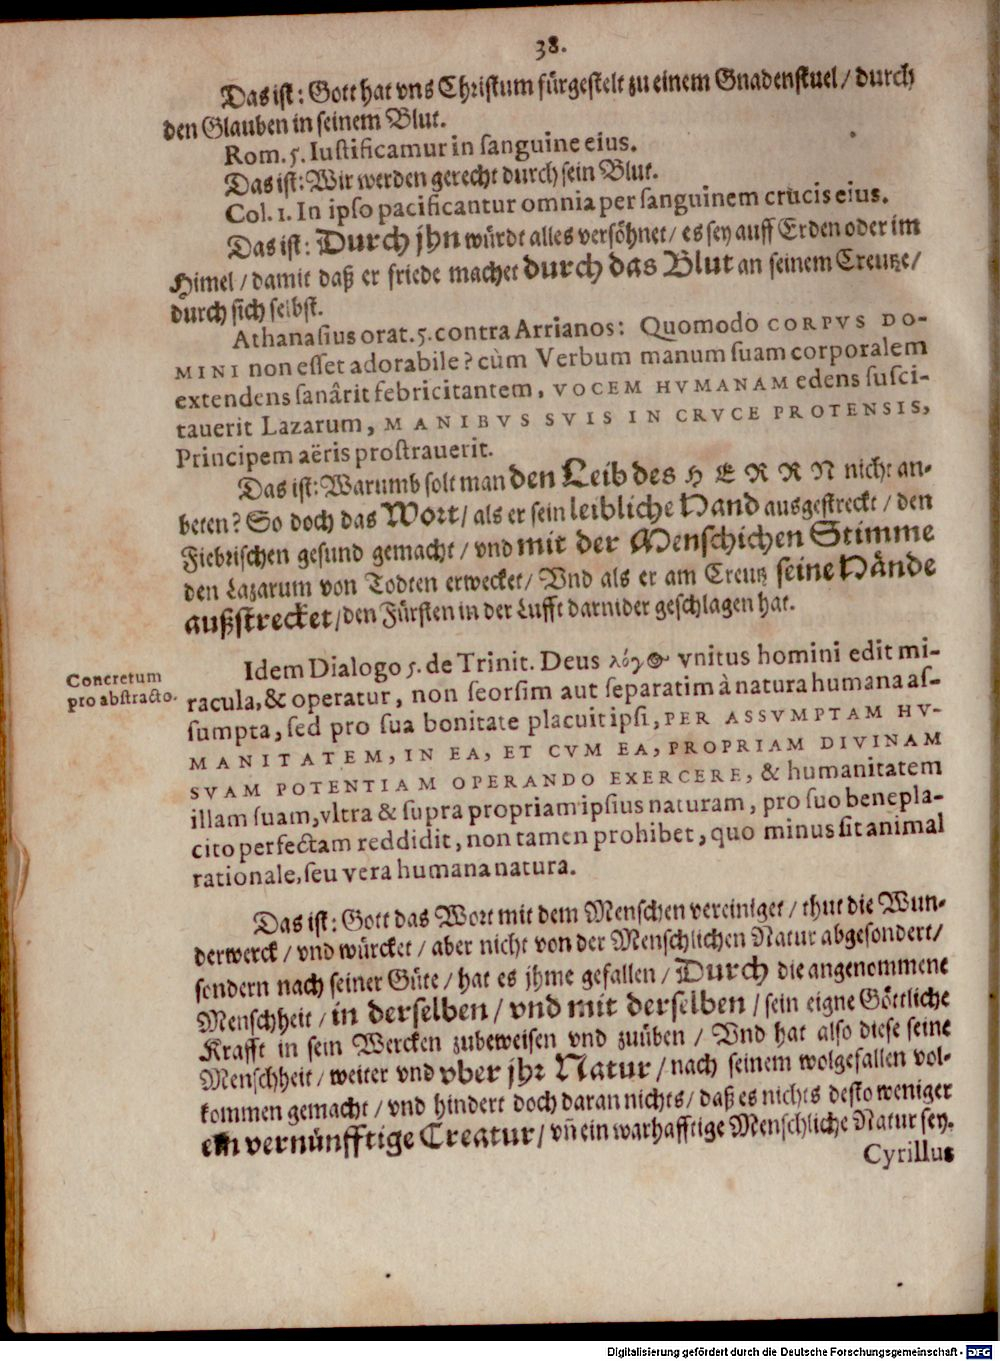 38.
Das ist: Gott hat vns Christum fürgestelt zu einem Gnadenstuel / durch
den Glauben in seinem Blut.
Rom. 5. Iustificamur in sanguine eius.
Das ist: Wir werden gerecht durch sein Blut.
Col. 1. In ipso pacificantur omnia per sanguinem crucis eius.
Das ist: Durch jhn würdt alles versöhnet / es sey auff Erden oder im
Himel / damit daß er friede machet durch das Blut an seinem Creutze /
durch sich selbst.
Athanasius orat. 5. contra Arrianos: Quomodo CORPVS DO-
MINI non esset adorabile? cùm Verbum manum suam corporalem
extendens sanârit febricitantem, VOCEM HVMANAM edens susci-
tauerit Lazarum, MANIBVS SVIS IN CRVCE PROTENSIS,
Principem aëris prostrauerit.
Das ist: Warumb solt man den Leib des HERRN nicht an-
beten? So doch das Wort / als er sein leibliche Hand ausgestreckt / den
Fiebrischen gesund gemacht / vnd mit der Menschichen Stimme
den Lazarum von Todten erwecket / Vnd als er am Creutz seine Hände
außstrecket / den Fürsten in der Lufft darnider geschlagen hat.
Concretum
pro abstracto.
Idem Dialogo 5. de Trinit. Deus λόγος vnitus homini edit mi-
racula, & operatur, non seorsim aut separatim à natura humana as-
sumpta, sed pro sua bonitate placuit ipsi, PER ASSVMPTAM HV-
MANITATEM, IN EA, ET CVM EA, PROPRIAM DIVINAM
SVAM POTENTIAM OPERANDO EXERCERE, & humanitatem
illam suam, vltra & supra propriam ipsius naturam, pro suo benepla-
cito perfectam reddidit, non tamen prohibet, quo minus sit animal
rationale, seu vera humana natura.
Das ist: Gott das Wort mit dem Menschen vereiniget / thut die Wun-
derwerck / vnd würcket / aber nicht von der Menschlichen Natur abgesondert /
sondern nach seiner Güte / hat es jhme gefallen / Durch die angenommene
Menschheit / in derselben / vnd mit derselben / sein eigne Göttliche
Krafft in sein Wercken zubeweisen vnd zuüben / Vnd hat also diese seine
Menschheit / weiter vnd vber jhr Natur / nach seinem wolgefallen vol-
kommen gemacht / vnd hindert doch daran nichts / daß es nichts desto weniger
ein vernünfftige Creatur / vñ ein warhafftige Menschliche Natur sey.
Cyrillus
Digitalisierung gefördert durch die Deutsche Forschungsgemeinschaft - DFG